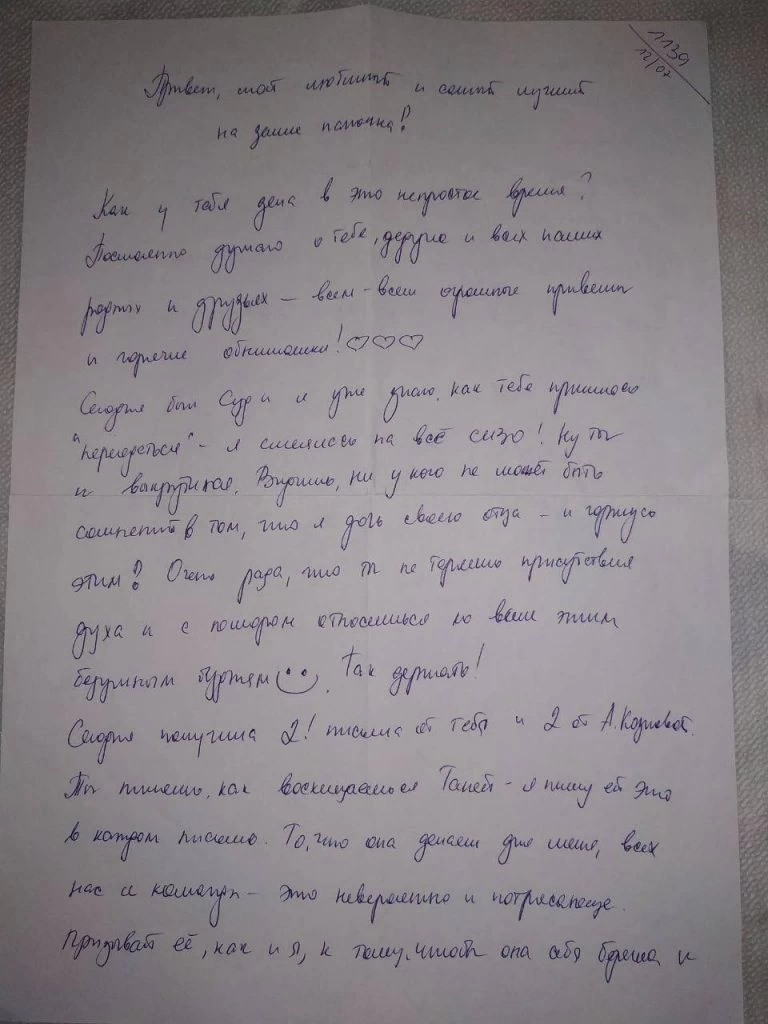 1139
12/07
Привет, мой любимый и самый лучший
на земле папочка!
Как у тебя дела в это непростое время?
Постоянно думаю о тебе, дедуле и всех наших
родных и друзьях – всем-всем огромные приветы
и горячие обнимашки! ♡♡♡
Сегодня был Суд и я уже знаю, как тебе пришлось
"переодеться" – я смеялась на всё сизо! Ну ты
и выкрутился. Видишь, ни у кого не может быть
сомнений в том, что я дочь своего отца – и горжусь
этим! Очень рада, что ты не теряешь присутствия
духа и с юмором относишься ко всем этим
безумным бурям. Так держать!
Сегодня получила 2! письма от тебя и 2 от А. Козловой.
Ты пишешь, как восхищаешься Таней – я пишу ей это
в каждом письме. То, что она делает для меня, всех
нас и команды – это невероятно и потрясающе.
Призывай её, как и я, к тому, чтобы она себя берегла и